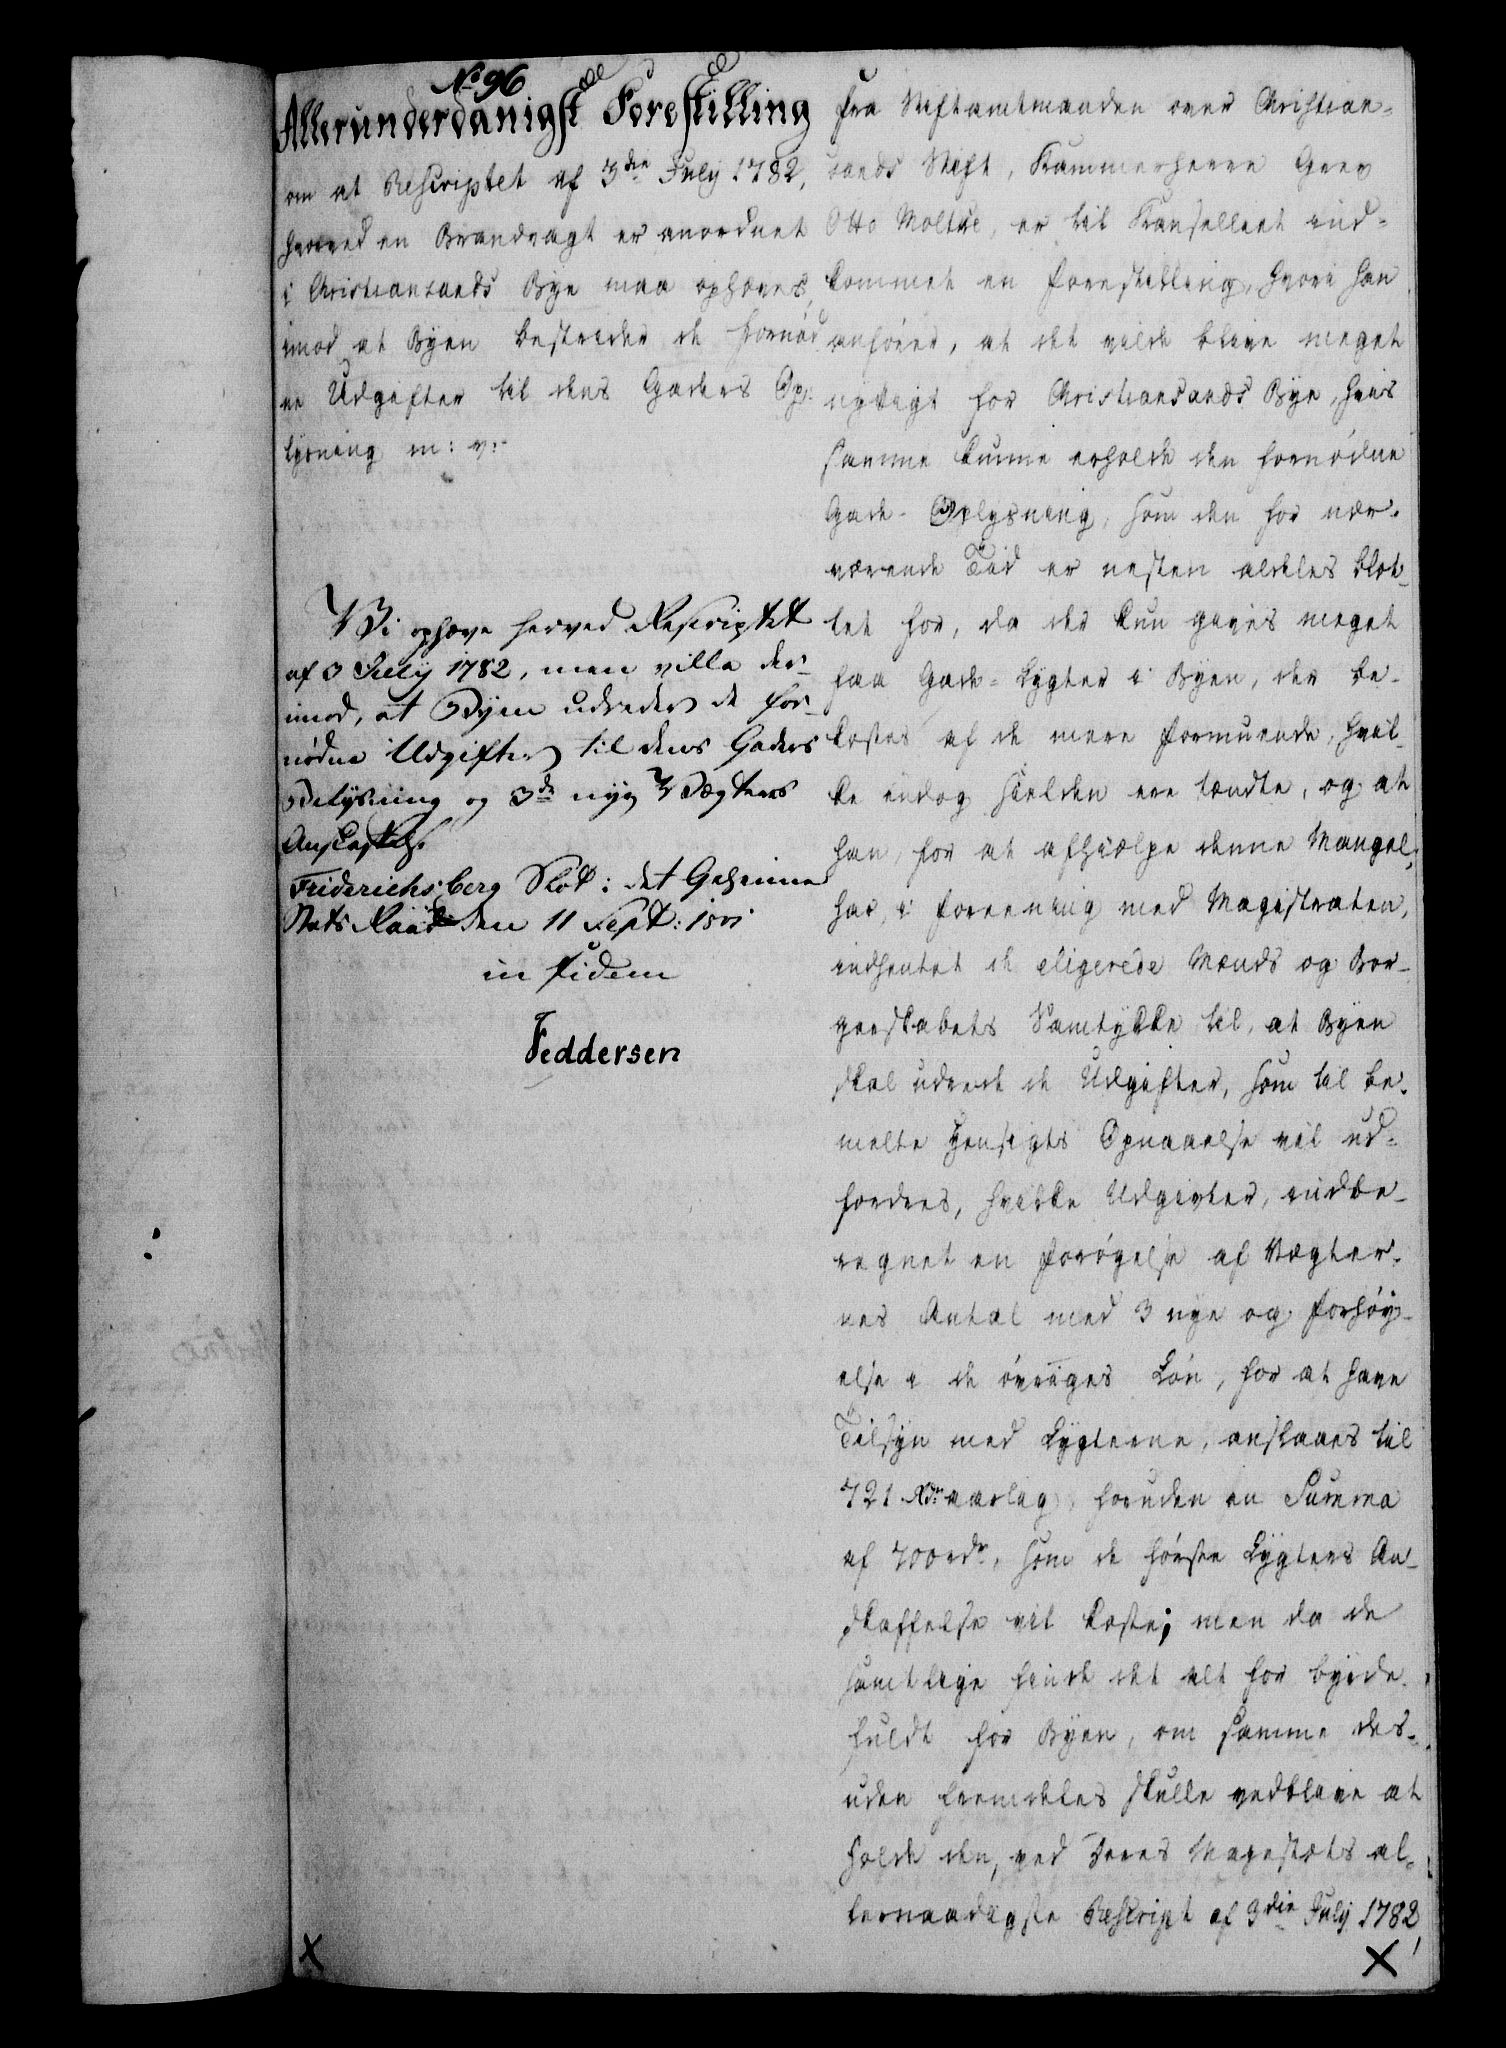 No 96
Allerunderdanigst Forestilling
om at Rescriptet af 3die July 1782,
hvorved en Brandvagt er anordnet
i Christiansands Bye maa ophæves,
imod at Byen bestrider de fornød
ne Udgifter til dens Gaders Op:
lysning m: v:
Vi ophæve herved Rescriptet
af 3 July 1782, men ville der-
imod, at Byen udreder de for-
nødne Udgifter til dens Gaders
Belysning og 3de nye Vægteres
Anskaffelse.
Friderichsberg Slot i det Geheime
Stats Raad den 11 Sept: 1801
in fidem
Feddersen
Fra Stiftamtmanden over Christian-
sands Stift, Kammerherre Grev
Otto Moltke, er til Kanselliet ind-
kommet en Forestilling, hvori han
anfører, at det vilde blive meget
nyttigt for Christiansands Bye, hvis
samme kunne erholde den fornødne
Gade-Oplysning, som den for nær-
værende Tid er nesten aldeles blot-
tet for, da der kun gives meget
faa Gade-Lygter i Byen, der be-
kostes af de mere formuende, hvil-
ke endog sielden ere tændte, og at
han, for at afhielpe denne Mangel,
har, i Foreening med Magistraten,
indhentet de eligerede Mænds og Bor-
gerskabets Samtykke til, at Byen
skal udrede de Udgifter, som til be-
melte Hensigts Opnaaelse vil ud-
fordres, hvilke Udgivter, indbe-
regnet en Forøgelse af Vægter-
nes Antal med 3 nye og Forhøy-
else i de øvriges Løn, for at have
Tilsyn med Lygterne, anslaaes til
721 Rdr aarlig, foruden en Summa
af 700 rdr, som de første Lygters An-
skaffelse vil koste; men da de
samtlige finde det alt for byrde-
fuldt for Byen, om samme des-
uden fremdeles skulle vedblive at
holde den, ved Deres Majestæts al-
lernaadigste Rescript af 3die July 1782,